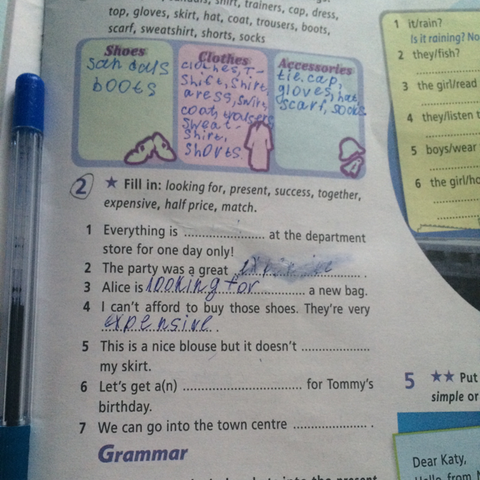 shirt, trainers, cap, dress,
top, gloves, skirt, hat, coat, trousers, boots,
scarf, sweatshirt, shorts, socks
Shoes
san dals
boots
Clothes
clothes, T-
shift, Shirt,
coat,
sweat-
shirt,
shorts
Accessories
tie, cap,
gloves, hat,
scarf, socks
2 ★ Fill in: looking for, present, success, together,
expensive, half price, match.
1 Everything is ........................ at the department
store for one day only!
2 The party was a great .
3 Alice is looking for a new bag.
4 I can't afford to buy those shoes. They're very
expensive.
5 This is a nice blouse but it doesn't ....................
my skirt.
6 Let's get a(n) .................................. for Tommy's
birthday.
7 We can go into the town centre ...................... .
Grammar
1 it/rain?
Is it raining? No
2 they/fish?
3 the girl/read
4 they/listen t
5 boys/wear
6 the girl/ho
5 ★★ Put
simple or
Dear Katy,
Hello from